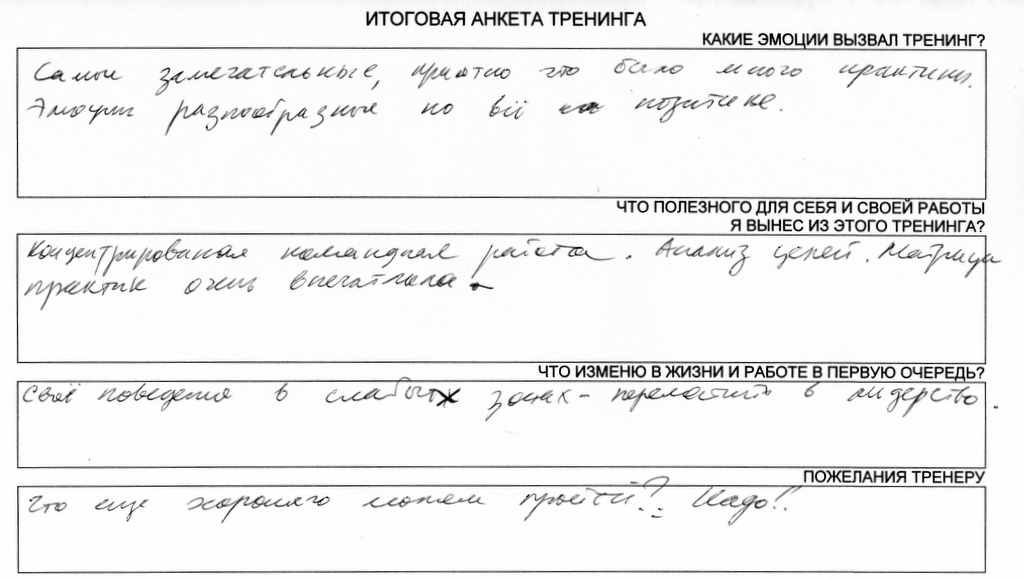 ИТОГОВАЯ АНКЕТА ТРЕНИНГА
КАКИЕ ЭМОЦИИ ВЫЗВАЛ ТРЕНИНГ?
Самые замечательные, приятно что было много практики.
Эмоции разнообразные но всё на позитиве.
ЧТО ПОЛЕЗНОГО ДЛЯ СЕБЯ И СВОЕЙ РАБОТЫ
Я ВЫНЕС ИЗ ЭТОГО ТРЕНИНГА?
Концентрированая командная работа. Анализ целей. Матрица
практик очень впечатлила.
ЧТО ИЗМЕНЮ В ЖИЗНИ И РАБОТЕ В ПЕРВУЮ ОЧЕРЕДЬ?
Своё поведения в слабых зонах - в лидерство.
ПОЖЕЛАНИЯ ТРЕНЕРУ
Что еще хорошего можем пройти? Надо!!